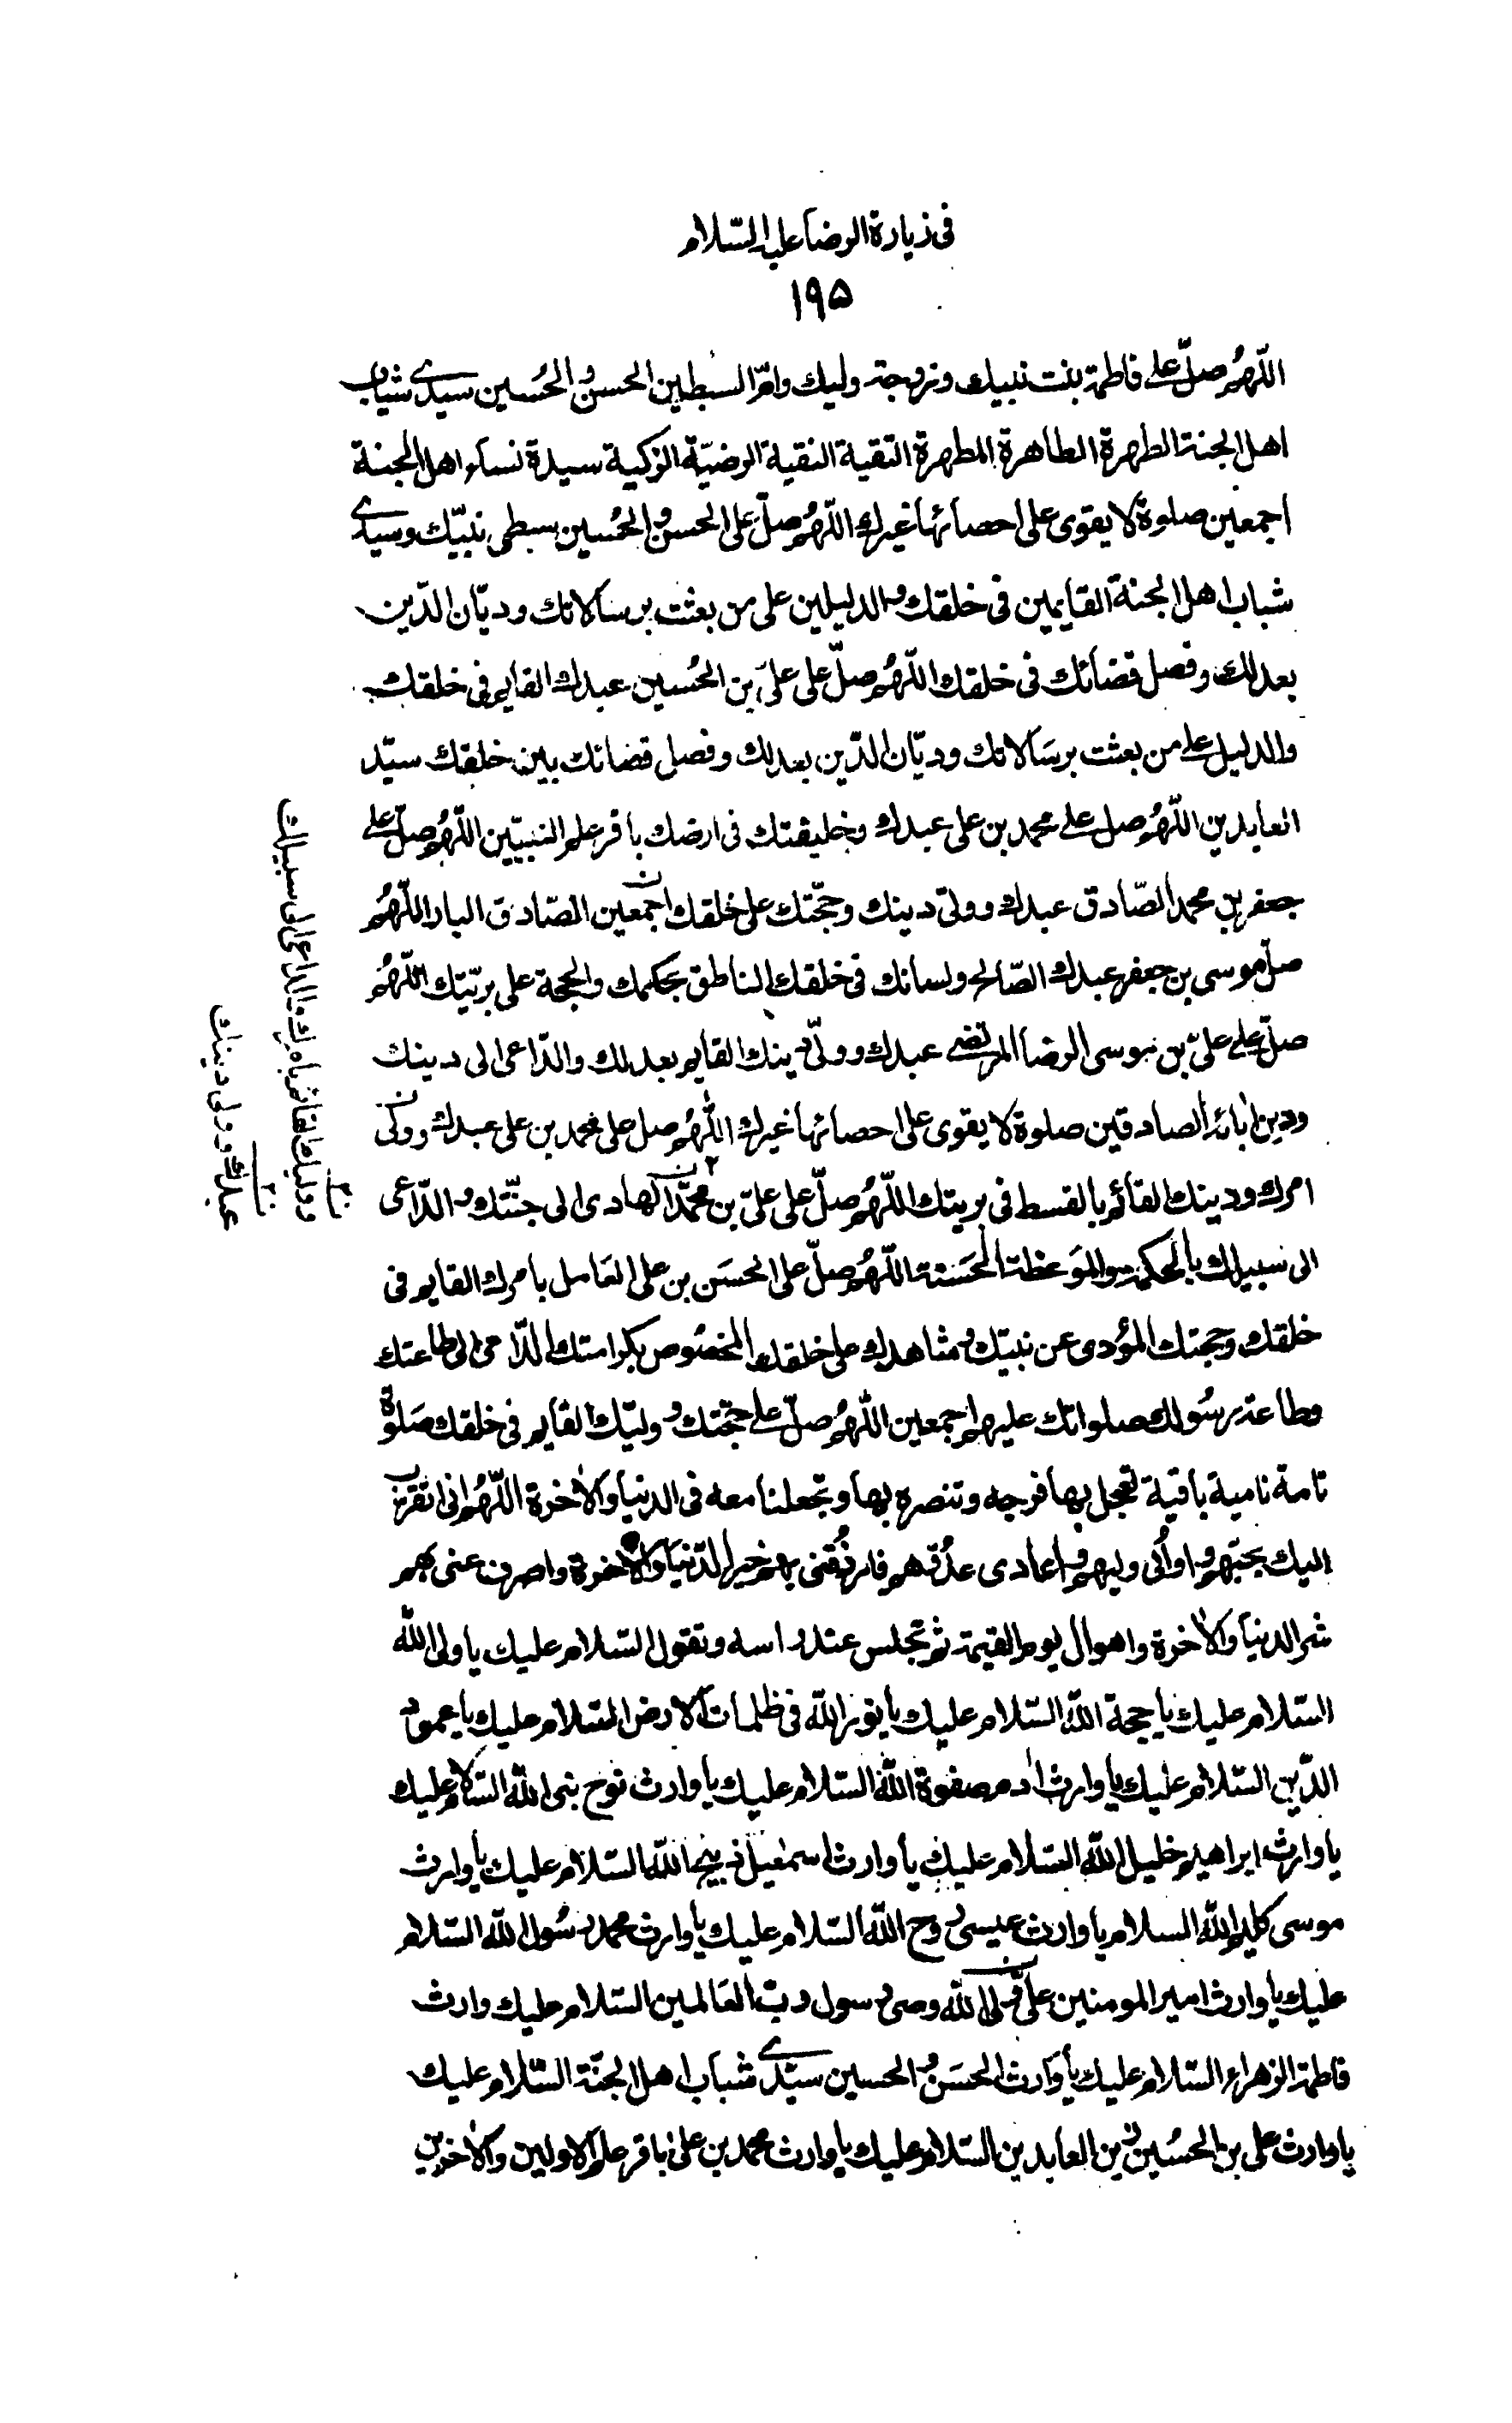 فى زيارة الرضا عليه السّلام
١٩۵
اللّهُم صلّ على فاطمة بنت نبيك وزوجة وليك وامّ السبطين الحسن والحُسين سيدى شباب
اهل الجنة الطهرة الطاهرة المطهرة التقية النقية الرضيّة الزكية سيدة نساء اهل الجنة
اجمعين صلوة لا يقوى على احصائها غيرك اللّهُم صلّ على الحسن والحُسين سبطى نبيّك وسيدى
شباب اهل الجنة القايمين فى خلقك والدليلين على من بعثت برسالاتك وديّان الدّين
بعدلك وفصل قضائك فى خلقك اللّهُم صلّ على علىّ بن الحُسين عبدك القايم فى خلقك
والدليل على من بعثت برسَالاتك وديّان الدّين بعدلك وفصل قضائك بين خلقك سيّد
العابدين اللّهُم صل على محمد بن على عبدك وخليفتك فى ارضك باقر علم النبيّين اللّهُم صلّ على
جعفر بن محمد الصّادق عبدك وولىّ دينك وحجّتك على خلقك اجمعين الصّادق البار اللّهُم
صلّ موسى بن جعفر عبدك الصّالح ولسانك فى خلقك الناطق بحكمك والحجة على بريّتك اللّهُم
صلّ على علىّ بن موسى الرضا المرتضى عبدك وولىّ دينك القايم بعدلك والدّاعى الى دينك
ودين ابائه الصادقين صلوة لا يقوى على احصائها غيرك اللّهُم صل على محمد بن على عبدك ووكى ن
امرك ودينك القائم بالقسط فى بريتك اللّهُم صلّ على علىّ بن محمّد ٢ ن الهادى الى جنّتك والدّاعى
الى سبيلك بالحكمة والموَعظة الحَسَنة اللّهُم صلّ على الحسَن بن على العَامل بامرك القايم فى
خلقك وحجتك المؤدى عن نبيّك وشاهدك على خلقك المخصُوص بكرامتك الدّاعى الى طاعتك
وطاعة رسُولك صلواتك عليهم اجمعين اللّهُم صلّ على حجّتك ووليّك القايم فى خلقك صَلوة
تامة نامية باقية تعجل بها فرجه وتنصره بها وتجعلنا معه فى الدنيا والاخرة اللّهُم انى اتقرب
اليك بحبّهم واوُالى وليهم واعادى عدُوّهم فارزُقنى بهم خير الدّنيا والاخرة واصرف عنى بهم
شر الدنيا والاخرة واهوال يوم القيمة ثم تجلس عند راسه وتقول السّلام عليك يا ولى الله
السّلام عليك يا حجة الله السّلام عليك يا نور الله فى ظلمات الارض السّلام عليك يا عمود
الدّين السّلام عليك يا وارث ادم صفوة الله السّلام عليك يا وارث نوح نبى الله السّلام عليك
يا وارث ابراهيم خليل الله السّلام عليك يا وارث اسمعيل ذبيح الله السّلام عليك يا وارث
موسى كليم الله السلام يا وارث عيسى روح الله السّلام عليك يا وارث محمد رسُول الله السّلام
عليك يا وارث امير المومنين على ولى الله وصى رسول ربّ العَالمين السّلام عليك وارث
فاطمة الزهراء السّلام عليك يا وَارث الحسَن والحسين سيّدى شباب اهل الجنّة السّلام عليك
يا وارث على بن الحسُين زين العابدين السّلام عليك يا وارث محمد بن على باقر علم الاولين والاخرين
ووليك القائم بامرك والداعى الى سبيلك
عبدك وولى دينك